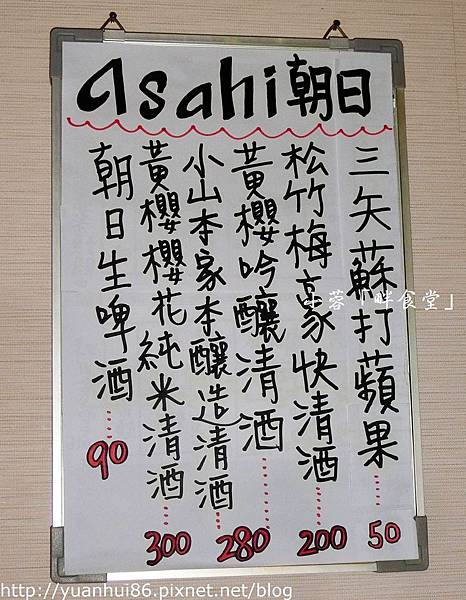 asahi朝日
三矢蘇打蘋果……50
松竹梅豪快清酒……200
黃櫻吟釀清酒……280
小山本家本釀造清酒
黃櫻櫻花純米清酒……300
朝日生啤酒……90
小蓉「畔食堂」
http://yuanhui86.pixnet.net/blog